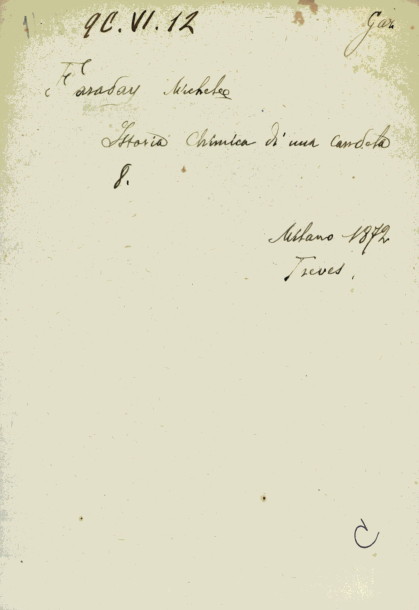 9C. VI. 12
Faraday Michele
Istoria Chimica di una candela
8.
Milano 1872
Treves.
C